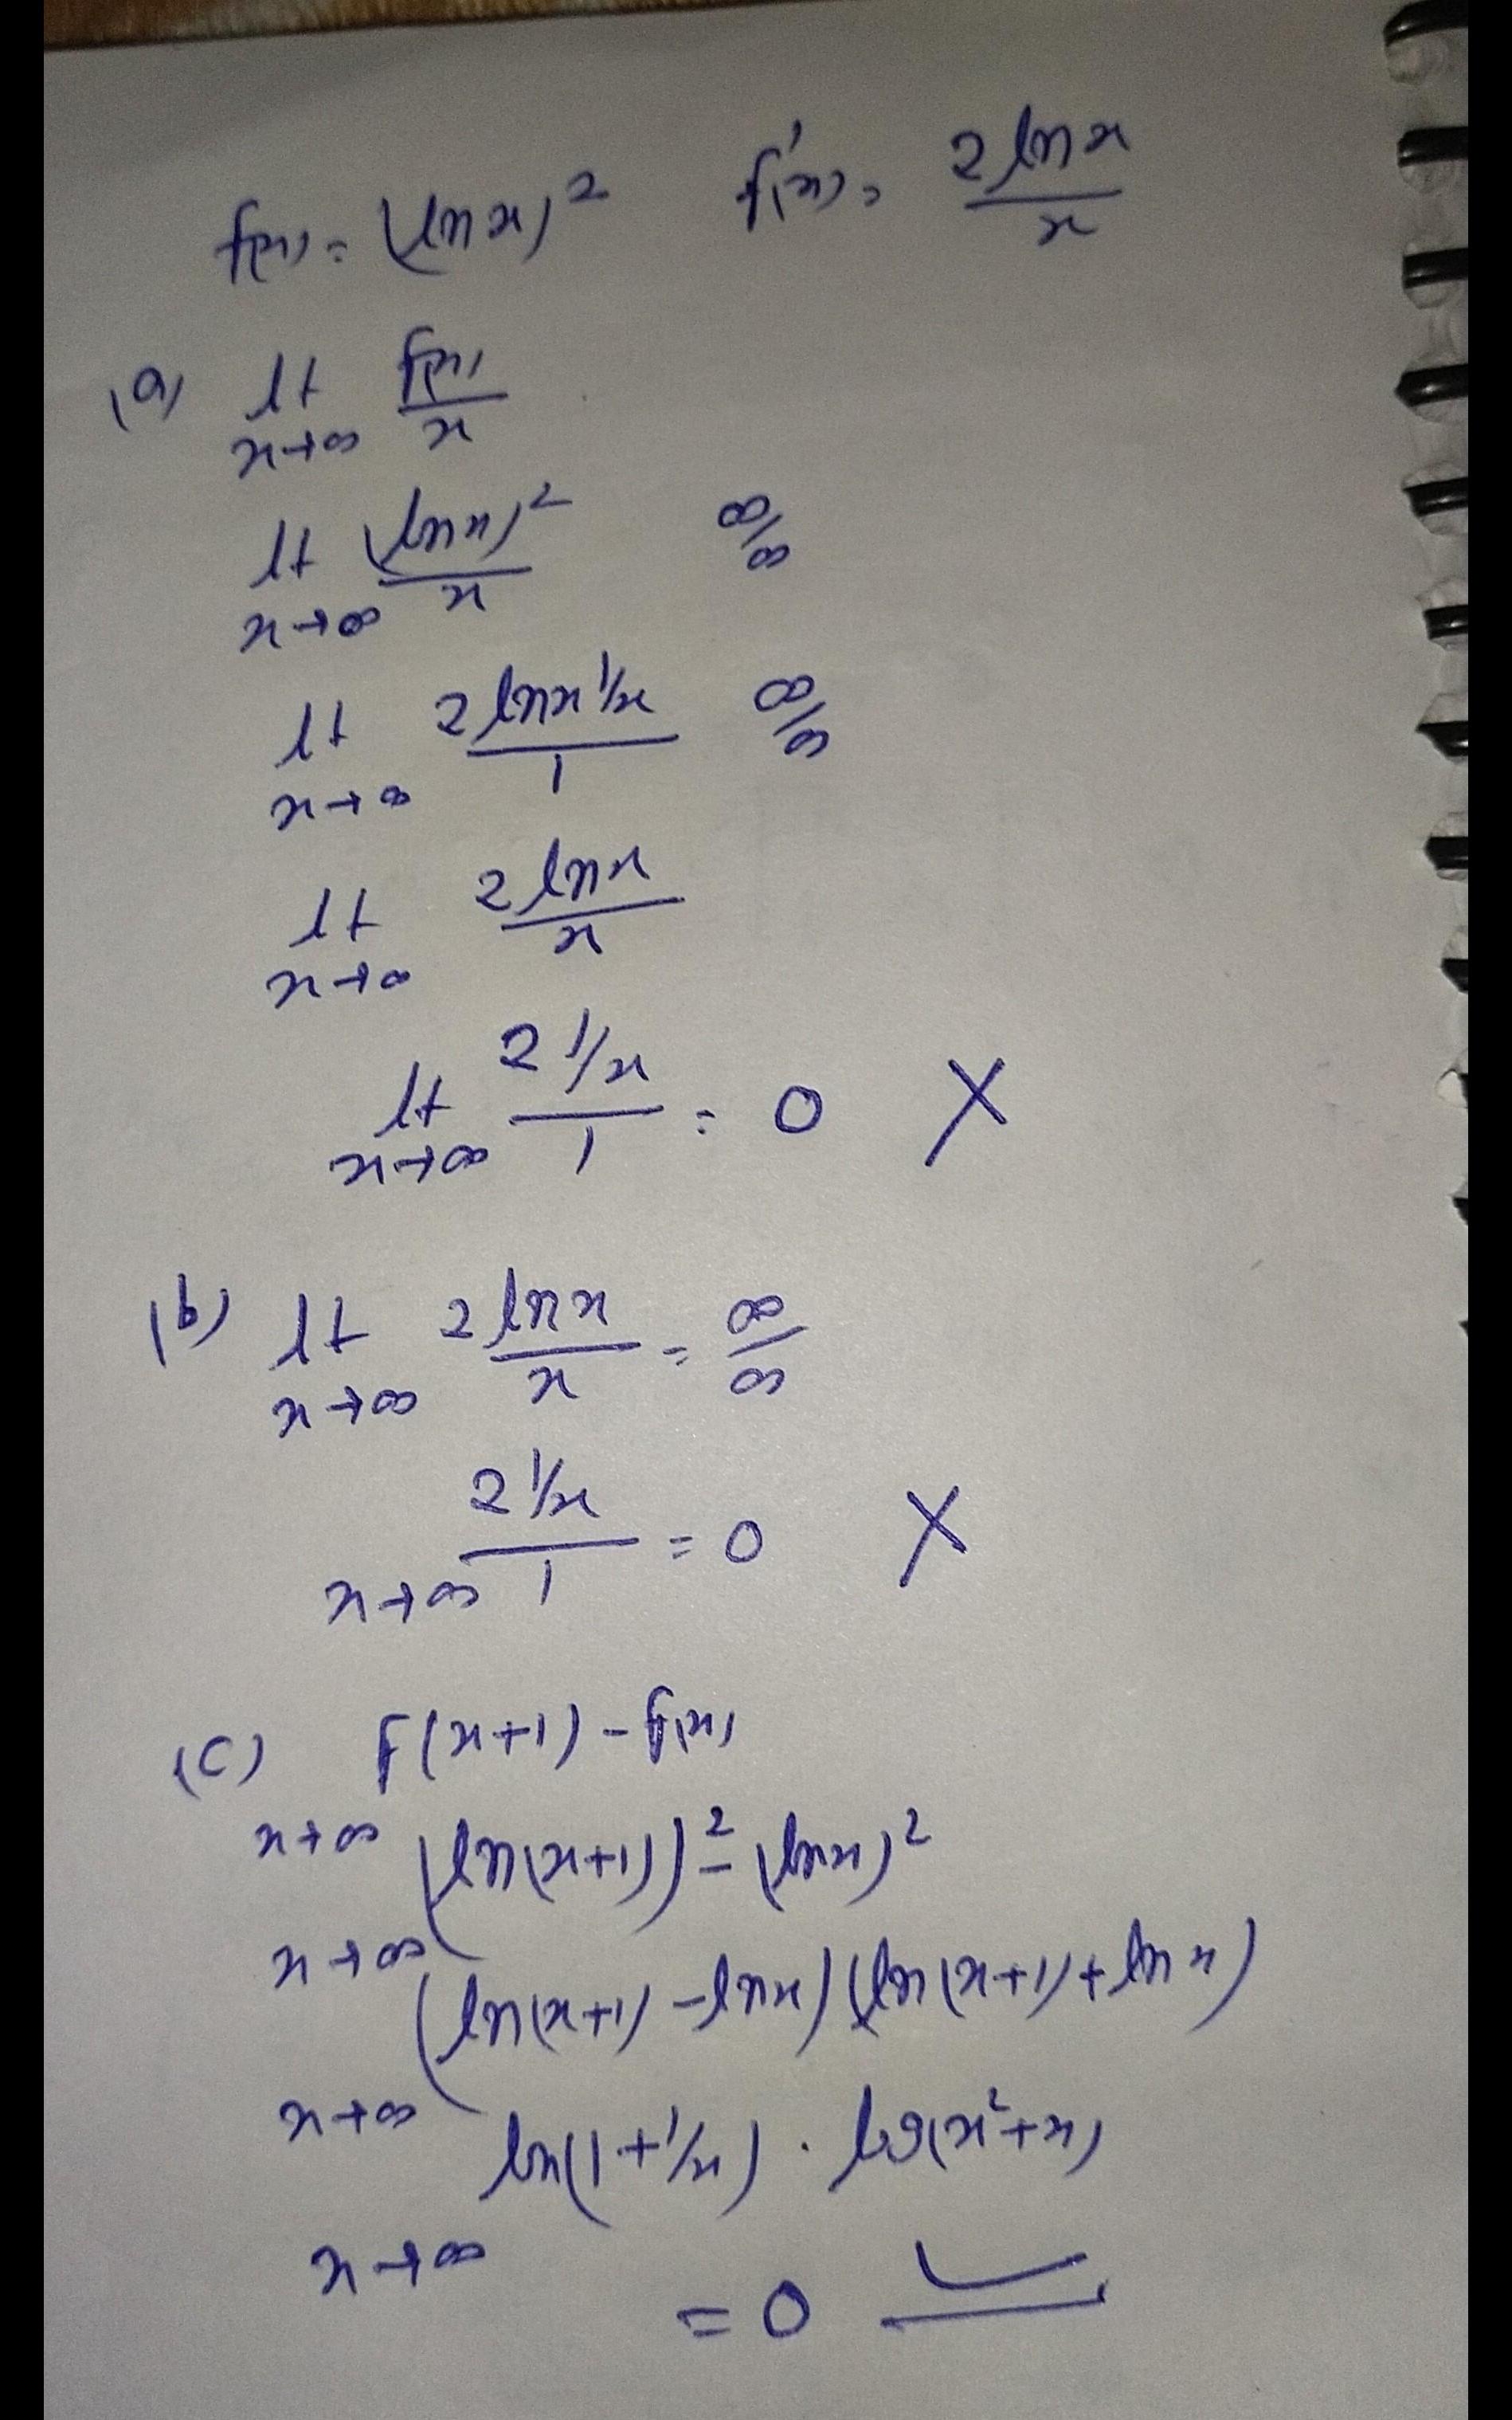 f(x) = (ln x)² f'(x) = 2 ln x / x
(a) lt x→∞ f(x) / x
lt x→∞ (ln x)² / x ∞/∞
lt x→∞ 2 ln x 1/x / 1 ∞/∞
lt x→∞ 2 ln x / x
lt x→∞ 2 1/x / 1 = 0 X
(b) lt x→∞ 2 ln x / x = ∞/∞
x→∞ 2 1/x / 1 = 0 X
(c) f(x+1) - f(x)
x→∞ (ln(x+1))² - (ln x)²
x→∞ (ln(x+1) - ln x) (ln(x+1) + ln x)
x→∞ ln(1+1/x) . log(x²+x)
x→∞ = 0 ✓